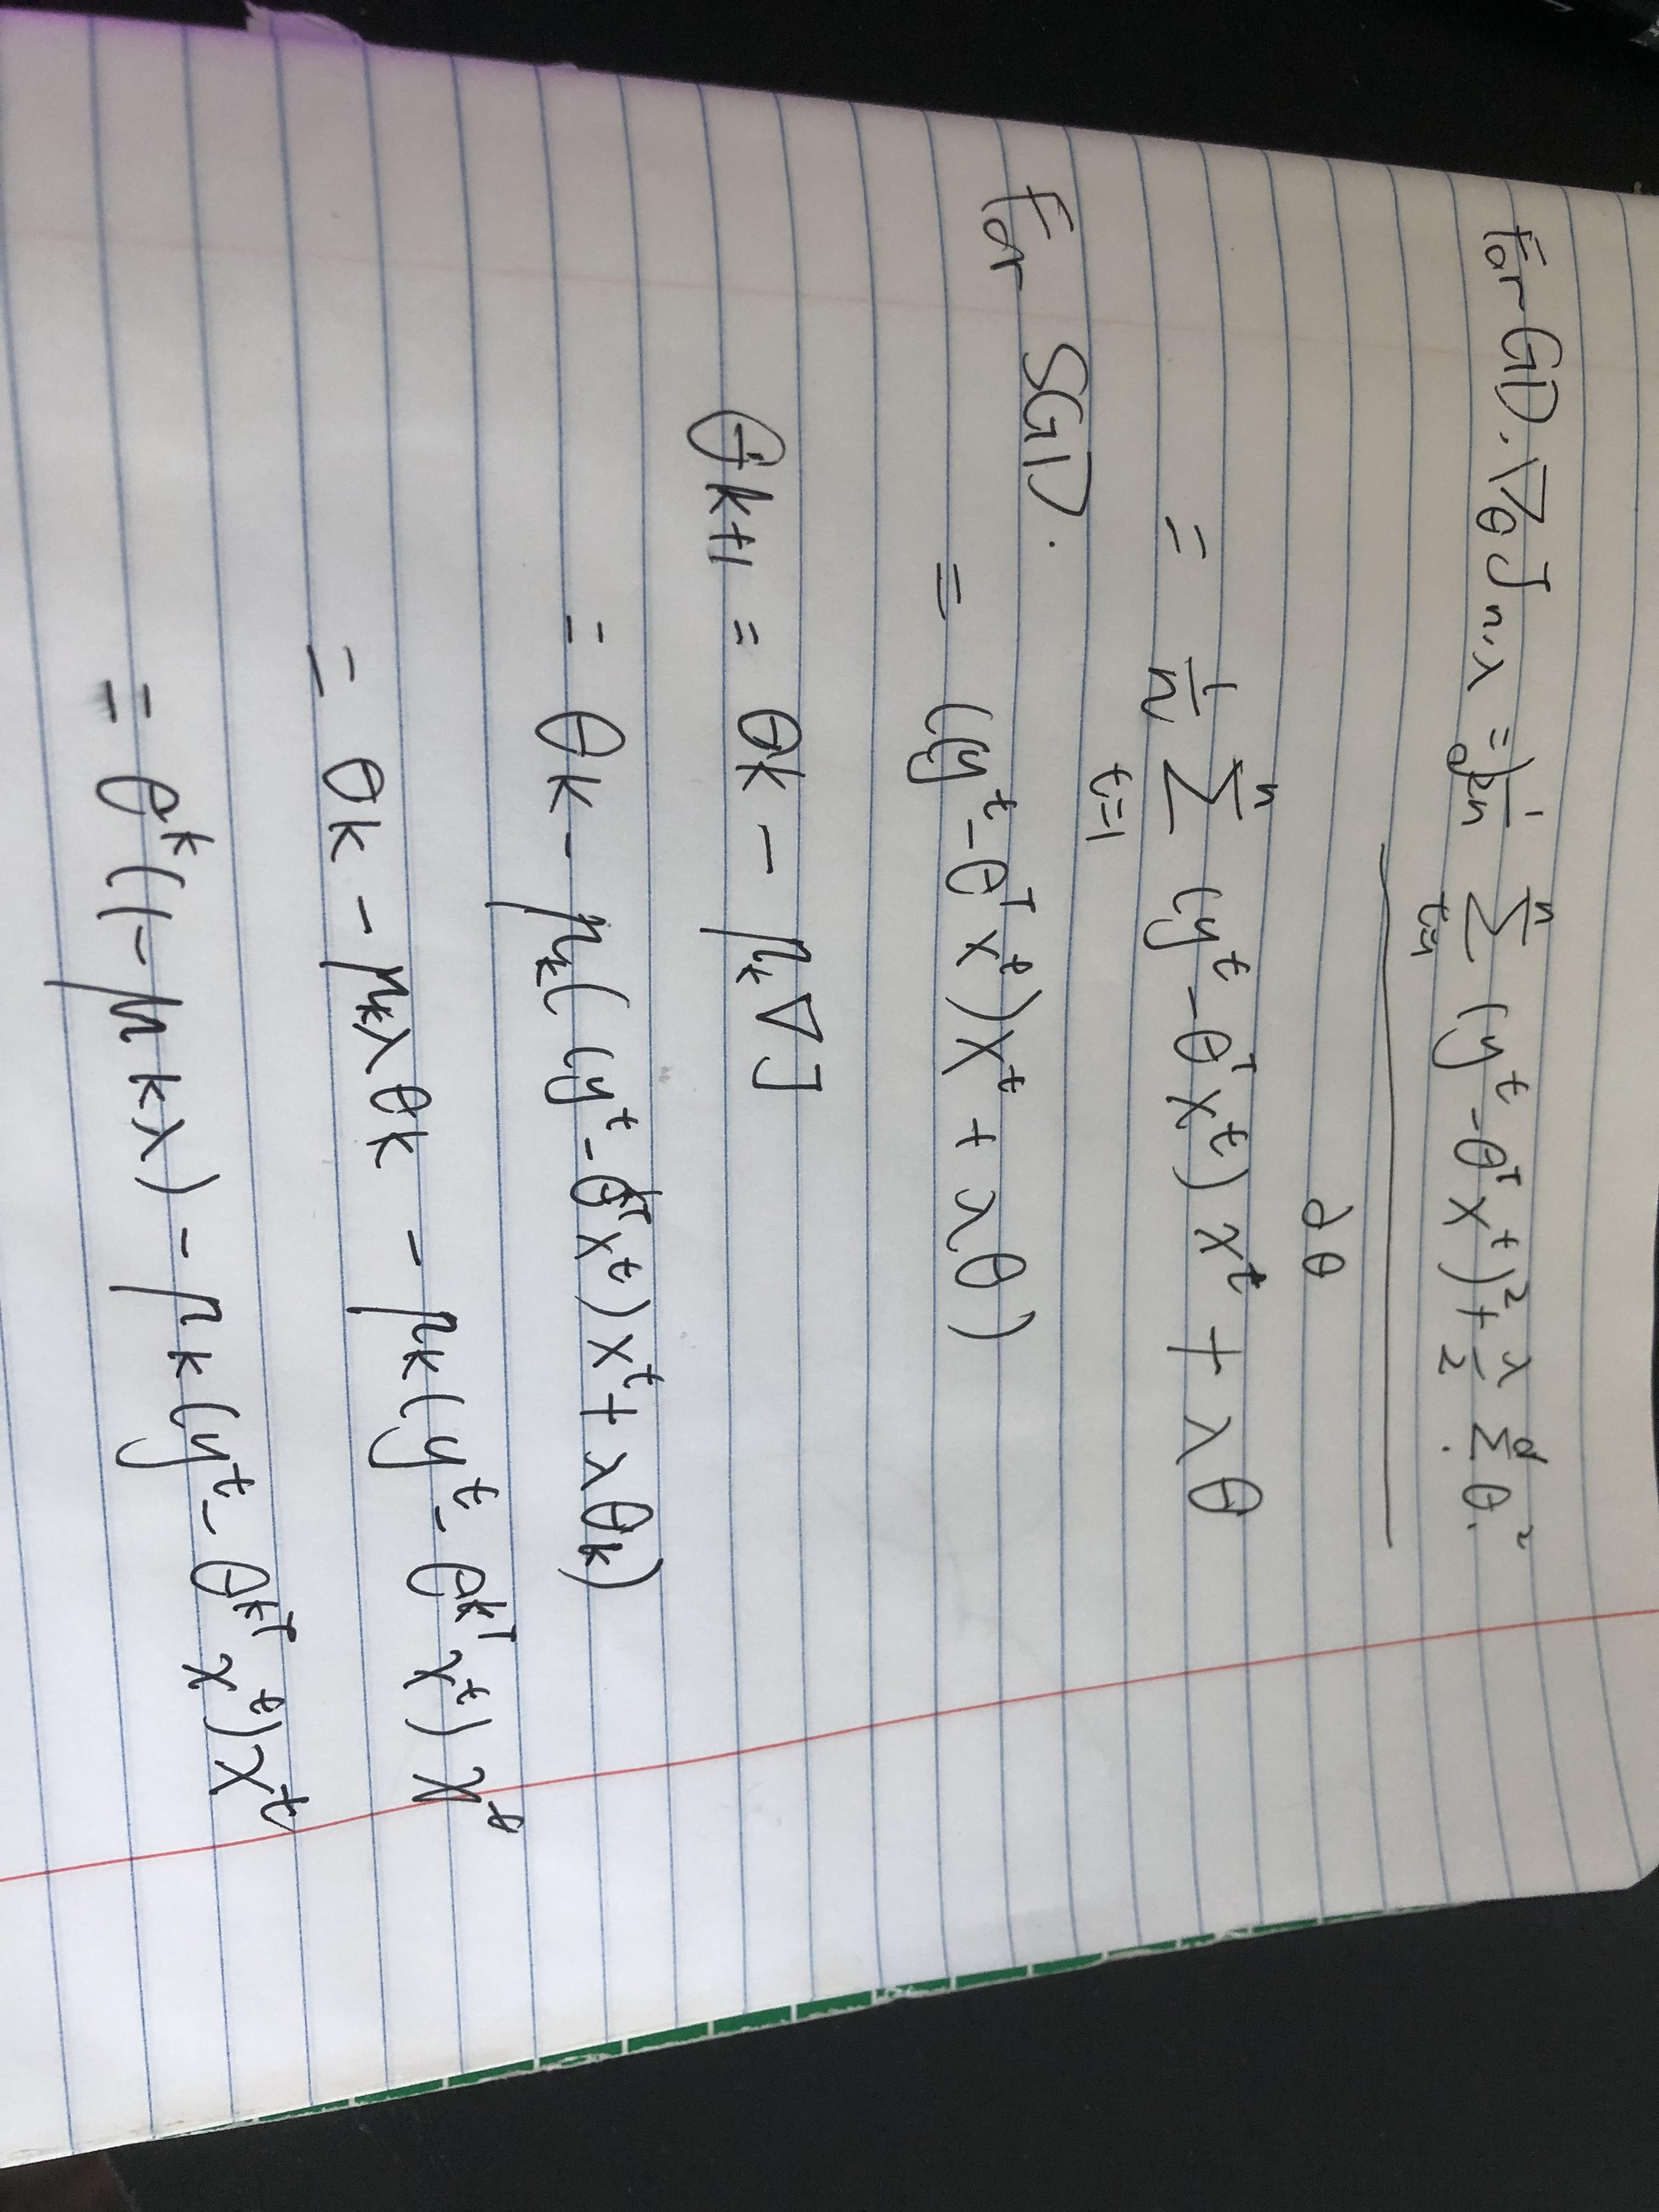 For GD. ∇θ J n,λ = ∂ 1/2n Σ_{t=1}^{n} (y^t - θ^T x^t)^2 + λ/2 Σ^d θ.^2
∂θ
= 1/n Σ_{t=1}^{n} (y^t - θ^T x^t) x^t + λ θ
For SGD.
= ((y^t - θ^T x^t) x^t + λ θ)
θ_{k+1} = θ_k - μ_k ∇ J
= θ_k - μ_k ( (y^t - θ^{kT} x^t) x^t + λ θ_k)
= θ_k - μ_k λ θ_k - μ_k (y^t - θ^{kT} x^t) x^t
= θ^k (1 - μ_k λ) - μ_k (y^t - θ^{kT} x^t) x^t